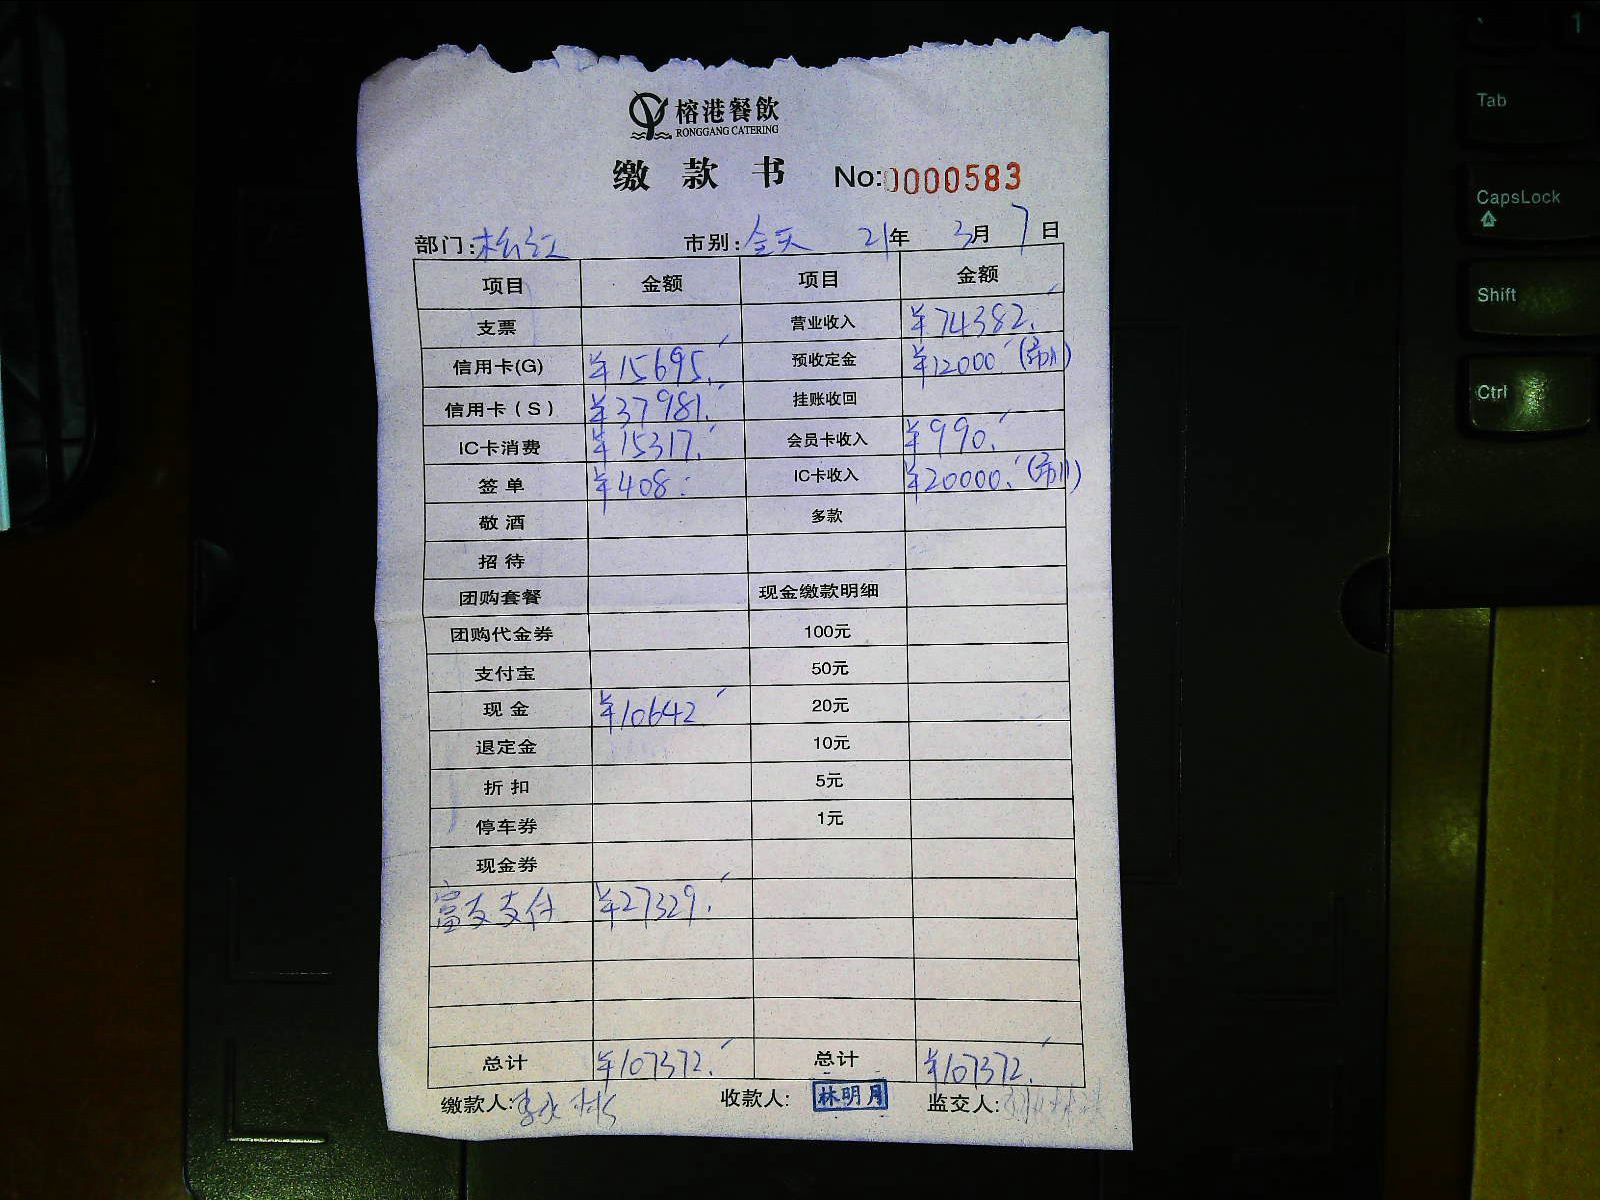 榕港餐飲
RONGGANG CATERING
缴款书 No:0000583
部门:松江 市别:全天 21年 3月 7日
项目 金额 项目 金额
支票 营业收入 ¥74382.
信用卡(G) ¥15695. 预收定金 ¥12000.
信用卡（S） ¥37981. 挂账收回
IC卡消费 ¥15317. 会员卡收入 ¥990.
签单 ¥408. IC卡收入 ¥20000.
敬酒 多款
招待
团购套餐 现金缴款明细
团购代金券 100元
支付宝 50元
现金 ¥10642 20元
退定金 10元
折扣 5元
停车券 1元
现金券
富友支付 ¥27329.
总计 ¥107372. 总计 ¥107372.
缴款人: 收款人: 林明月 监交人:
Tab
CapsLock
Shift
Ctrl
1